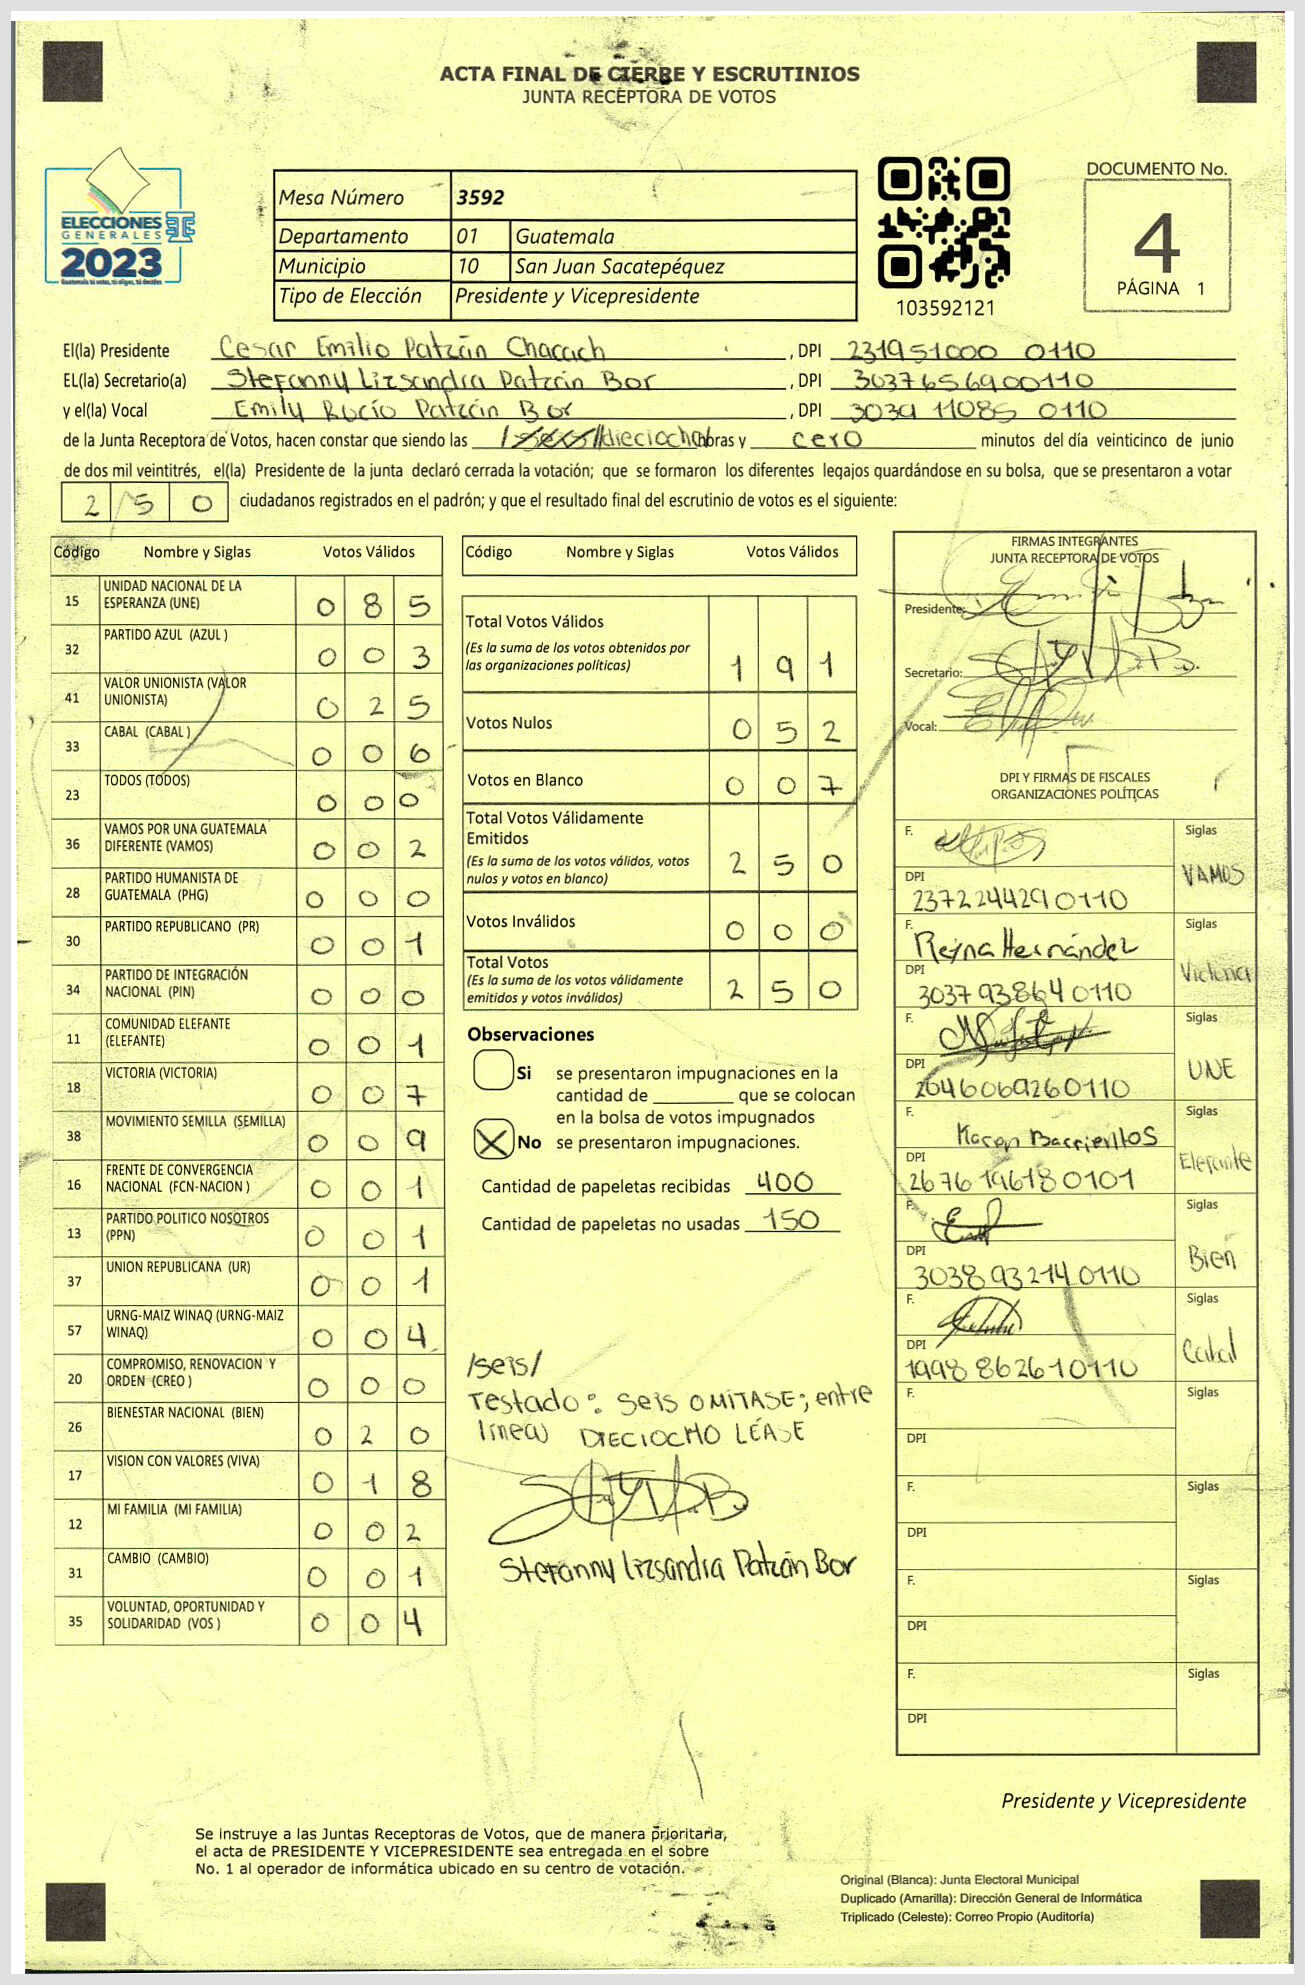 ACTA FINAL DE CIERRE Y ESCRUTINIOS
JUNTA RECEPTORA DE VOTOS
ELECCIONES
GENERALES
2023
Mesa Número 3592
Departamento 01 Guatemala
Municipio 10 San Juan Sacatepéquez
Tipo de Elección Presidente y Vicepresidente
103592121
DOCUMENTO No.
4
PÁGINA 1
El(la) Presidente Cesar Emilio Patzán Chacach , DPI 231951000 0110
EL(la) Secretario(a) Stefanny Lizsandra Patzán Bor , DPI 3037656900110
y el(la) Vocal Emily Rocío Patzán Bor , DPI 3039 11085 0110
de la Junta Receptora de Votos, hacen constar que siendo las /seis/ /dieciocho/ horas y cero minutos del día veinticinco de junio
de dos mil veintitrés, el(la) Presidente de la junta declaró cerrada la votación; que se formaron los diferentes legajos guardándose en su bolsa, que se presentaron a votar
2 5 0 ciudadanos registrados en el padrón; y que el resultado final del escrutinio de votos es el siguiente:
Código Nombre y Siglas Votos Válidos
15 UNIDAD NACIONAL DE LA ESPERANZA (UNE) 0 8 5
32 PARTIDO AZUL (AZUL ) 0 0 3
41 VALOR UNIONISTA (VALOR UNIONISTA) 0 2 5
33 CABAL (CABAL ) 0 0 6
23 TODOS (TODOS) 0 0 0
36 VAMOS POR UNA GUATEMALA DIFERENTE (VAMOS) 0 0 2
28 PARTIDO HUMANISTA DE GUATEMALA (PHG) 0 0 0
30 PARTIDO REPUBLICANO (PR) 0 0 1
34 PARTIDO DE INTEGRACIÓN NACIONAL (PIN) 0 0 0
11 COMUNIDAD ELEFANTE (ELEFANTE) 0 0 1
18 VICTORIA (VICTORIA) 0 0 7
38 MOVIMIENTO SEMILLA (SEMILLA) 0 0 9
16 FRENTE DE CONVERGENCIA NACIONAL (FCN-NACION ) 0 0 1
13 PARTIDO POLITICO NOSOTROS (PPN) 0 0 1
37 UNION REPUBLICANA (UR) 0 0 1
57 URNG-MAIZ WINAQ (URNG-MAIZ WINAQ) 0 0 4
20 COMPROMISO, RENOVACION Y ORDEN (CREO ) 0 0 0
26 BIENESTAR NACIONAL (BIEN) 0 2 0
17 VISION CON VALORES (VIVA) 0 1 8
12 MI FAMILIA (MI FAMILIA) 0 0 2
31 CAMBIO (CAMBIO) 0 0 1
35 VOLUNTAD, OPORTUNIDAD Y SOLIDARIDAD (VOS ) 0 0 4
Código Nombre y Siglas Votos Válidos
Total Votos Válidos
(Es la suma de los votos obtenidos por
las organizaciones políticas) 1 9 1
Votos Nulos 0 5 2
Votos en Blanco 0 0 7
Total Votos Válidamente
Emitidos
(Es la suma de los votos válidos, votos
nulos y votos en blanco) 2 5 0
Votos Inválidos 0 0 0
Total Votos
(Es la suma de los votos válidamente
emitidos y votos inválidos) 2 5 0
Observaciones
Si se presentaron impugnaciones en la
cantidad de ________ que se colocan
en la bolsa de votos impugnados
X No se presentaron impugnaciones.
Cantidad de papeletas recibidas 400
Cantidad de papeletas no usadas 150
/seis/
Testado: seis OMITASE; entre
linea) DIECIOCHO LÉASE
Stefanny Lizsandra Patzán Bor
FIRMAS INTEGRANTES
JUNTA RECEPTORA DE VOTOS
Presidente:
Secretario:
Vocal:
DPI Y FIRMAS DE FISCALES
ORGANIZACIONES POLÍTICAS
F. Siglas
VAMOS
DPI
2372244290110
F. Reyna Hernández Siglas
Victoria
DPI
3037938640110
F. Siglas
UNE
DPI
2046069260110
F. Karen Barrientos Siglas
Elefante
DPI
2676196180101
F. Siglas
Bien
DPI
3038932140110
F. Siglas
Cabal
DPI
1998862610110
F. Siglas
DPI
F. Siglas
DPI
F. Siglas
DPI
F. Siglas
DPI
Presidente y Vicepresidente
Se instruye a las Juntas Receptoras de Votos, que de manera prioritaria,
el acta de PRESIDENTE Y VICEPRESIDENTE sea entregada en el sobre
No. 1 al operador de informática ubicado en su centro de votación.
Original (Blanca): Junta Electoral Municipal
Duplicado (Amarilla): Dirección General de Informática
Triplicado (Celeste): Correo Propio (Auditoría)